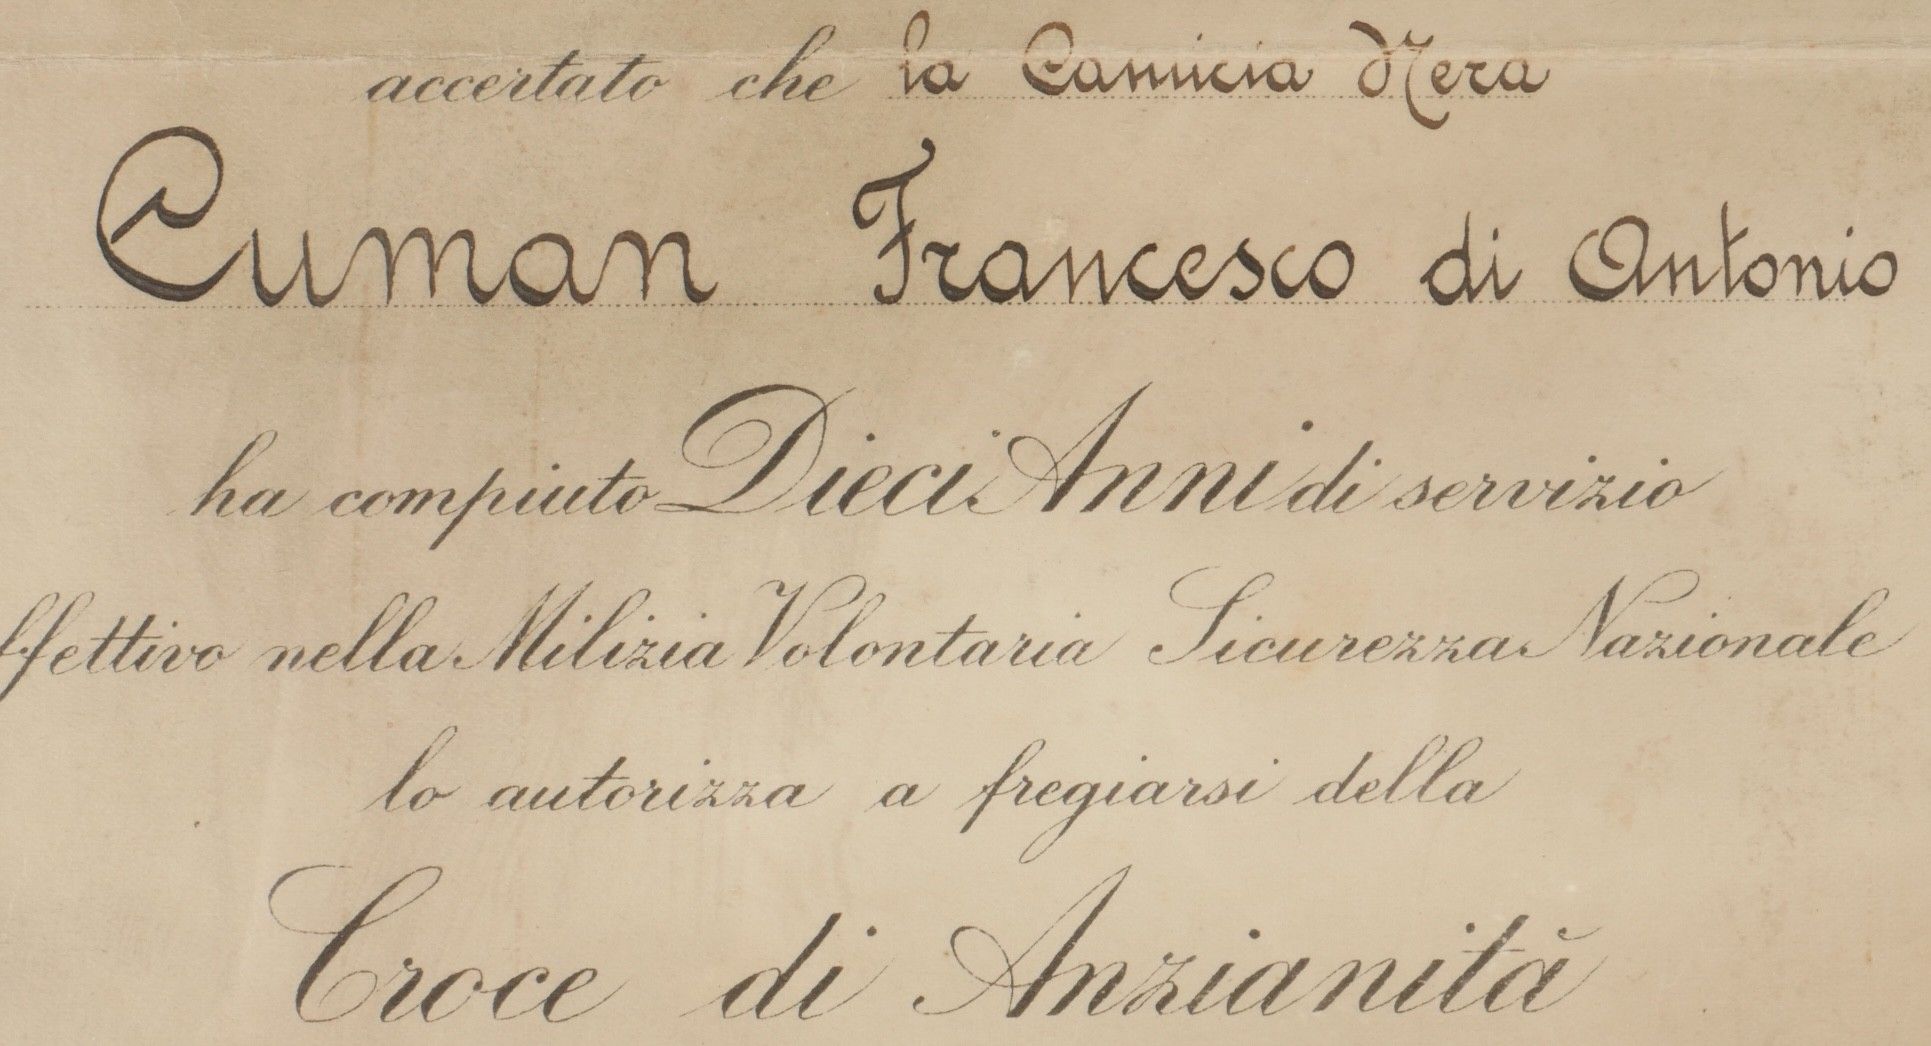 accertato che la Camicia Nera
Cuman Francesco di Antonio
ha compiuto Dieci Anni di servizio
ffettivo nella Milizia Volontaria Sicurezza Nazionale
lo autorizza a fregiarsi della
Croce di Anzianità